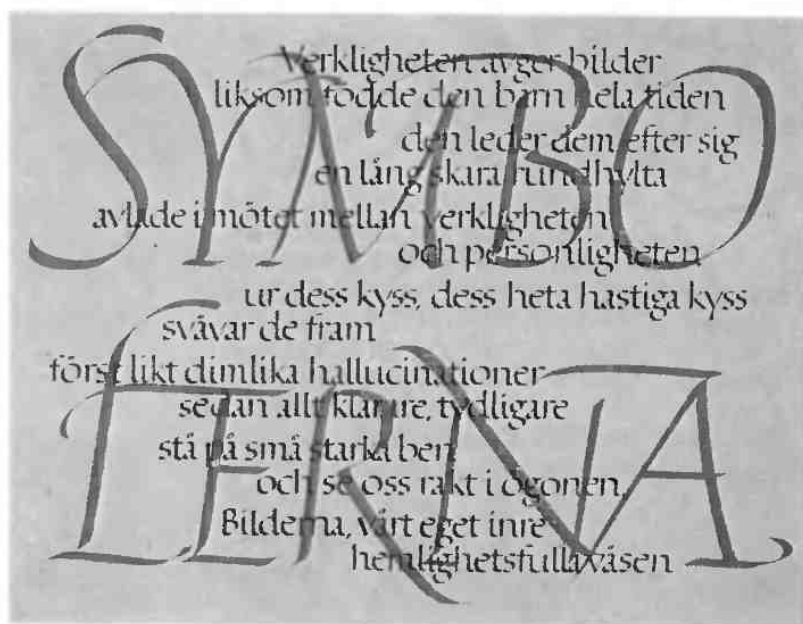 SYMBO
Verkligheten avger bilder
liksom födde den barn hela tiden
den leder dem efter sig
en lång skara
avlade i mötet mellan verkligheten
och personligheten
ur dess kyss, dess heta hastiga kyss
svävar de fram
LERNA
först likt dimlika hallucinationer
sedan allt klarare, tydligare
stå på små starka ben
och se oss rakt i ögonen.
Bilderna, vårt eget inre
hemlighetsfulla väsen